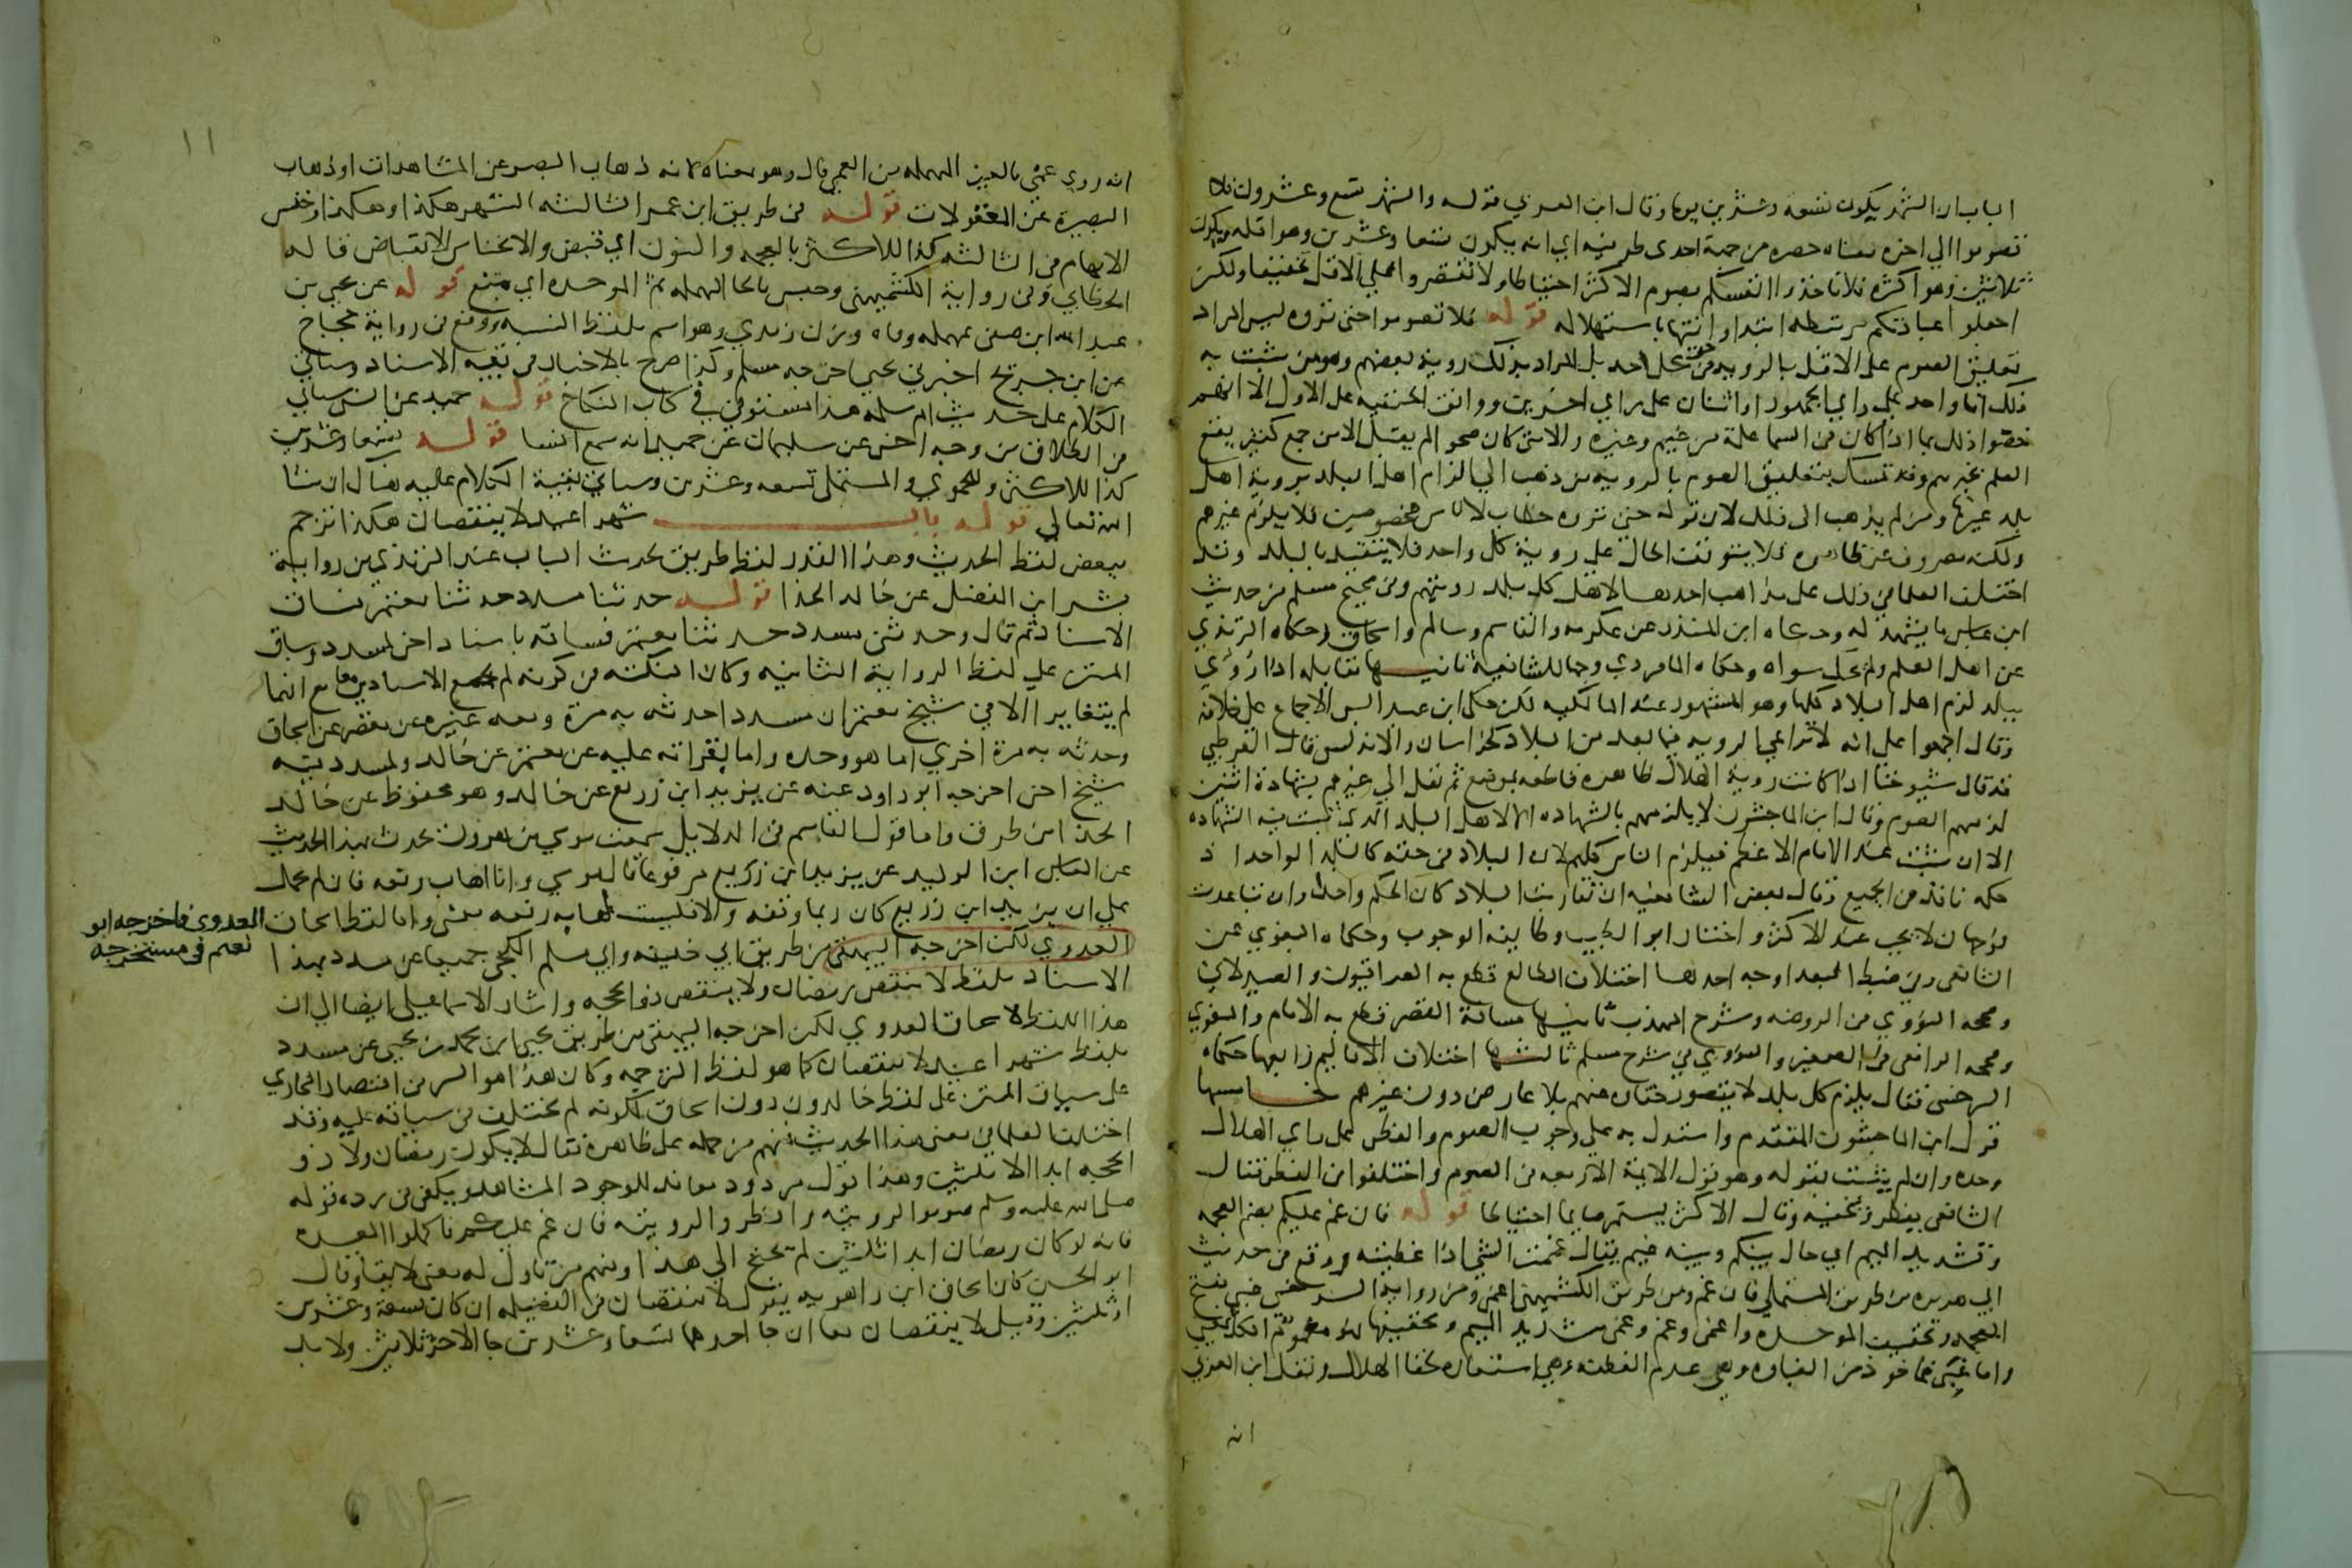 الباب ان الشهر يكون تسعة وعشرين يوما وقال ابن العربي قوله والشهر تسع وعشرون فلا
تصوموا الي اخره معناه حصره من جهة احدى طرفيه اي انه يكون تسعا وعشرين وهو اقله ويكون
ثلاثين وهو اكثره فلا تاخذوا انفسكم بصوم الاكثر احتياطا ولا تقتصروا علي الاقل تخفيفا ولكن
اجعلوا عبادتكم مرتبطة ابتداء وانتها باستهلاله قوله فلا تصوموا حتى تروه ليس المراد
تعليق الصوم على الاقل بالرويه في حق كل احد بل المراد بذلك روية بعضهم وهو من يثبت به
ذلك اما واحد على راي الجمهور او اثنان على راي اخرين ووافق الحنفيه على الاول الا انهم
خصوا ذلك بما اذا كان في السما علة من غيم وغيره والا متى كان صحوا لم يقبل الا من جمع كثير يقع
العلم بخبرهم وقد تمسك بتعليق الصوم بالرويه من ذهب الي الزام اهل البلد بروية اهل
بلد غيرها ومن لم يذهب الى ذلك لان قوله حتى تروه خطاب لاناس مخصوصين فلا يلزم غيرهم
ولكنه مصروف عن ظاهره فلا يتوقف الحال على روية كل واحد فلا يتقيد بالبلد وقد
اختلف العلما في ذلك على مذاهب احدها لاهل كل بلد رويتهم وفي صحيح مسلم من حديث
ابن عباس ما يشهد له وحكاه ابن المنذر عن عكرمه والقاسم وسالم واسحاق وحكاه الترمذي
عن اهل العلم ولم يحك سواه وحكاه الماوردي وجها للشافعية ثانيها مقابله اذا رؤي
ببلد لزم اهل البلاد كلها وهو المشهور عند المالكيه لكن حكى ابن عبد البر الاجماع على خلافه
وقال اجمعوا على انه لا تراعي الرويه فيما بعد من البلاد كخراسان والاندلس قال القرطبي
قد قال شيوخنا اذا كانت روية الهلال ظاهره قاطعه بموضع ثم نقل الي غيرهم بشهادة اثنين
لزمهم الصوم وقال ابن الماجشون لا يلزمهم بالشهاده الا لاهل البلد الذي ثبتت فيه الشهاده
الا ان يثبت عند الامام الاعظم فيلزم الناس كلهم لان البلاد في حقه كالبلد الواحد اذ
حكمه نافذ في الجميع وقال بعض الشافعيه ان تقاربت البلاد كان الحكم واحدا وان تباعدت
فوجهان لا يجب عند الاكثر واختار ابو الطيب وطايفه الوجوب وحكاه البغوي عن
الشافعي وفي ضبط البعد اوجه احدها اختلاف المطالع قطع به العراقيون والصيدلاني
وصححه النووي في الروضه وشرح المهذب ثانيها مسافة القصر قطع به الامام والبغوي
وصححه الرافعي في الصغير والنووي في شرح مسلم ثالثها اختلاف الاقاليم رابعها حكاه
السرخسي فقال يلزم كل بلد لا يتصور خفاه عنهم بلا عارض دون غيرهم خامسها
قول ابن الماجشون المتقدم واستدل به على وجوب الصوم والفطر على من راي الهلال
وحده وان لم يثبت بقوله وهو قول الائمة الاربعه في الصوم واختلفوا في الفطر فقال
الشافعي يفطر ويخفيه وقال الاكثر يستمر صايما احتياطا قوله فان غم عليكم بضم المعجمه
وتشديد الميم اي حال بينكم وبينه غيم يقال غممت الشي اذا غطيته ووقع في حديث
ابي هريره من طريق المستملي فان غم ومن طريق الكشميهني اغمي ومن رواية السرخسي غبي بفتح
المعجمه وتخفيف الموحده واغمي وغم وغمي بتشديد الميم وتخفيفها فهو مغموم الكل بمعني
واما غبي فماخوذ من الغباوه وهي عدم الفطنه وهي استعاره لخفا الهلال ونقل ابن العربي
انه
١١
انه روي عمي بالعين المهمله من العمي قال وهو بمعناه لانه ذهاب البصر عن المشاهدات او ذهاب
البصيرة عن المعقولات قوله في طريق ابن عمر الثالثه الشهر هكذا وهكذا وخنس
الابهام في الثالثه كذا للاكثر بالمعجمه والنون اي قبض والانخناس الانقباض قاله
الخطابي وفي رواية الكشميهني وحبس بالحا المهمله ثم الموحده اي منع قوله عن يحيي بن
عبد الله ابن صيفي بمهمله وفاه وزن زيدي وهو اسم بلفظ النسبه ووقع في رواية حجاج
عن ابن جريج اخبرني يحيي اخرجه مسلم وكذا صرح بالاخبار في بقية الاسناد وسياتي
الكلام على حديث ام سلمه هذا مستوفى في كتاب النكاح قوله حميد عن انس سياتي
في الطلاق من وجه اخر عن سليمان عن حميد انه سمع انسا قوله تسعا وعشرين
كذا للاكثر وللحموي والمستملي تسعه وعشرين وسياتي بقية الكلام عليه هناك ان شا
الله تعالي قوله باب شهرا عيد لا ينقصان هكذا ترجم
ببعض لفظ الحديث وهذا القدر لفظ طريق لحديث الباب عند الترمذي من رواية
بشر ابن المفضل عن خالد الحذا قوله حدثنا مسدد حدثنا معتمر فساق
الاسناد ثم قال وحدثني مسدد حدثنا معتمر فساقه باسناد اخر لمسدد وساق
المتن علي لفظ الرواية الثانيه وكان النكته في كونه لم يجمع الاسنادين معا مع انهما
لم يتغايرا الا في شيخ معتمر ان مسددا حدثه به مرة ومعه غيره عن معتمر عن اسحاق
وحدثه به مرة اخري اما هو وحده واما بقراته عليه عن معتمر عن خالد ولمسدد فيه
شيخ اخر اخرجه ابو داود عنه عن يزيد ابن زريع عن خالد وهو محفوظ عن خالد
الحذا من طرق واما قول القاسم في الدلايل سمعت موسي بن هرون يحدث بهذا الحديث
عن العباس ابن الوليد عن يزيد ابن زريع مرفوعا قال موسي وانا اهاب رفعه فان لم يحمل
علي ان يزيد ابن زريع كان ربما وقفه والا فليست لمهابه رفعه معنى واما لفظ اسحاق العدوي فاخرجه ابو
نعيم في مستخرجه
العدوي لكن اخرجه البيهقي من طريق ابي خليفه وابي مسلم الكجي جميعا عن مسدد بهذا
الاسناد بلفظ لا ينقص رمضان ولا ينقص ذو الحجه واشار الاسماعيلي ايضا الي ان
هذا اللفظ لاسحاق العدوي لكن اخرجه البيهقي من طريق يحيي ابن محمد بن يحيي عن مسدد
بلفظ شهرا عيد لا ينقصان كما هو لفظ الترجمه وكان هذا هو السر في اقتصار البخاري
على سياق المتن على لفظ خالد دون اسحاق لكونه لم يختلف في سياقه عليه وقد
اختلف العلما في معنى هذا الحديث فمنهم من حمله على ظاهره فقال لا يكون رمضان ولا ذو
الحجه ابدا الا ثلثين وهذا قول مردود معاند للوجود المشاهد ويكفي في رده قوله
صلى الله عليه وسلم صوموا لرويته وافطروا لرويته فان غم عليكم فاكملوا العده
فانه لو كان رمضان ابدا ثلثين لم يحتج الي هذا ومنهم من تاول له معنى لايقا وقال
ابو الحسن كان اسحاق ابن راهويه يقول لا ينقصان في الفضيله ان كان تسعة وعشرين
او ثلثين وقيل لا ينقصان معا ان جا احدهما تسعا وعشرين جا الاخر ثلاثين ولا بد